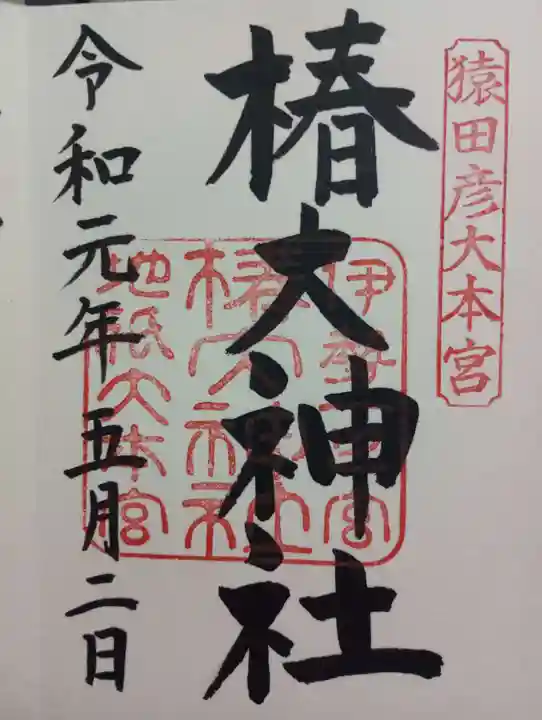 猿田彦大本宮
椿大神社
令和元年五月二日
伊勢一之宮
椿大神社
地祇大本宮